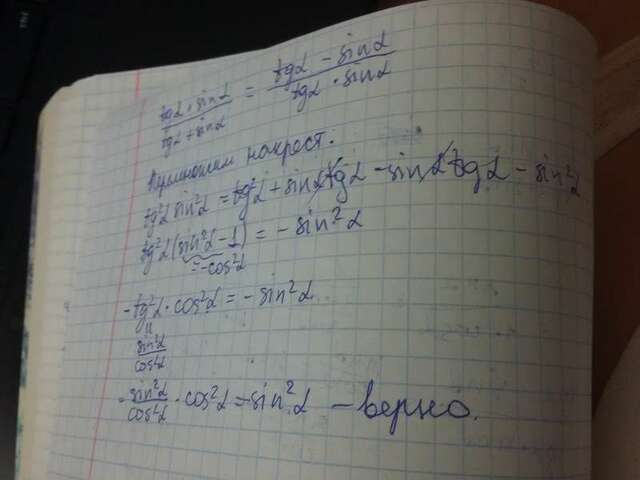 tgα · sinα / tgα + sinα = tgα - sinα / tgα · sinα
Умножим накрест.
tg²α sin²α = tg²α + sinα tgα - sinα tgα - sin²α
tg²α (sin²α - 1) = - sin²α
- cos²α
- tg²α · cos²α = - sin²α
sin²α / cos²α
- sin²α / cos²α · cos²α = - sin²α - верно.